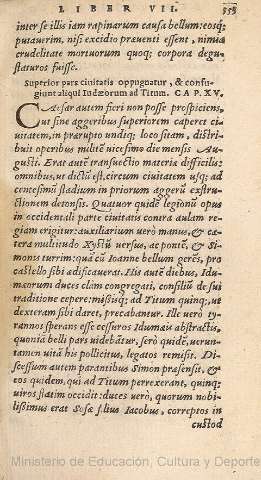 LIBER VII. 353
inter se illis iam rapinarum causa bellum: eosq;
putauerim, nisi excidio præuenti essent, nimia
crudelitate mortuorum quoq; corpora degu-
staturos fuisse.
Superior pars ciuitatis oppugnatur, & confu-
giunt aliqui Iudæorum ad Titum. CAP. XV.
CAesar autem fieri non posse prospiciens,
vt sine aggeribus superiorem caperet ci
uitatem, in prærupto undiq; loco sitam, distri-
buit operibus milite vicesimo die mensis Au-
gusti. Erat autē transuectio materia difficilis,
omnibus, ut dictū est, circum ciuitatem usq; ad
centesimū stadium in priorem aggerū exstru-
ctionem detonsis. Quatuor quidē legionū opus
in occidentali parte ciuitatis contra aulam re-
giam erigitur: auxiliarium verò manus, & cæ-
tera multitudo Xystū versus, ac pontē, & Si-
monis turrim: quā cū Ioanne bellum gerēs, pro
castello sibi ædificauerat. His autē diebus, Idu-
mæorum duces clàm congregati, consiliū de sui
traditione cepere: missisq; ad Titum quinq; ut
dexteram sibi daret, precabantur. Ille verò ty-
rannos sperans esse cessuros Idumæis abstractis,
quonta belli pars videbātur, serò quidē, verun-
tamen vitā his pollicitus, legatos remisit. Di-
scessum autem parantibus Simon præsensit, &
eos quidem, qui ad Titum perrexerant, quinq;
uiros statim occidit: duces verò, quorum nobi-
lissimus erat Sosæ filius Iacobus, correptos in
custod
Ministerio de Educación, Cultura y Deporte